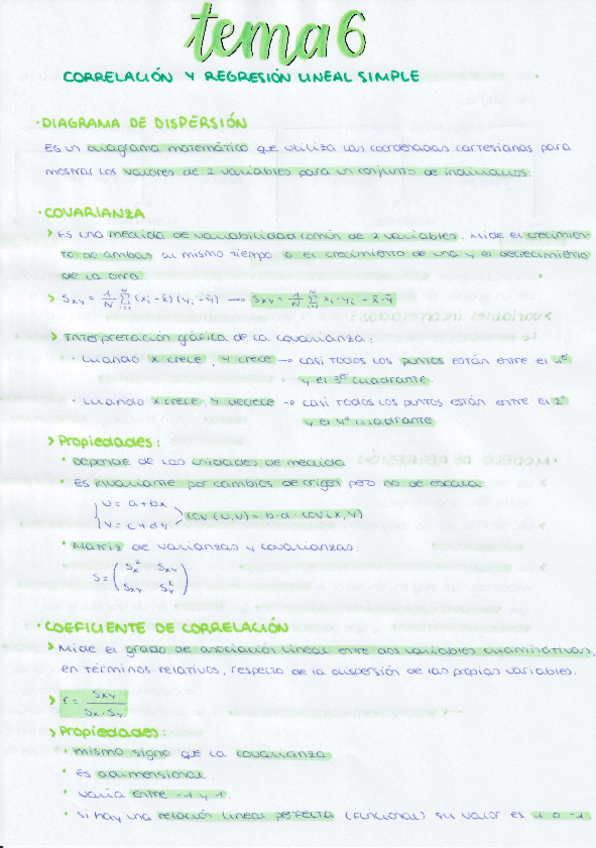 tema 6
CORRELACIÓN Y REGRESIÓN LINEAL SIMPLE
·DIAGRAMA DE DISPERSIÓN
Es un diagrama matemático que utiliza las coordenadas cartesianas para
mostrar los valores de 2 variables para un conjunto de individuos.
·COVARIANZA
> Es una medida de variabilidad común de 2 variables. Mide el crecimien-
to de ambas su mismo tiempo o el crecimiento de una y el decrecimiento
de la otra.
> Sxy = 1/N Σ(xi - x̄)(yi - ȳ) → Sxy = 1/N Σ xi · yi - x̄ · ȳ
> Interpretación gráfica de la covarianza:
· Cuando x crece, y crece → casi todos los puntos están entre el 1º
y el 3º cuadrante.
· Cuando x crece, y decrece → casi todos los puntos están entre el 2º
y el 4º cuadrante
> Propiedades:
· Depende de las unidades de medida
· Es invariante por cambios de origen pero no de escala:
U = a + bx
V = c + dy } cov (U,V) = b·d · cov (x,y)
· Matriz de varianzas y covarianzas:
S = ( Sx² Sxy
Sxy Sy² )
· COEFICIENTE DE CORRELACIÓN
> Mide el grado de asociación lineal entre dos variables cuantitativas,
en términos relativos, respecto de la dispersión de las propias variables.
> r = Sxy / Sx · Sy
> Propiedades:
· mismo signo que la covarianza
· Es adimensional.
· Varía entre -1 y 1.
· Si hay una relación lineal perfecta (funcional) su valor es 1 o -1.